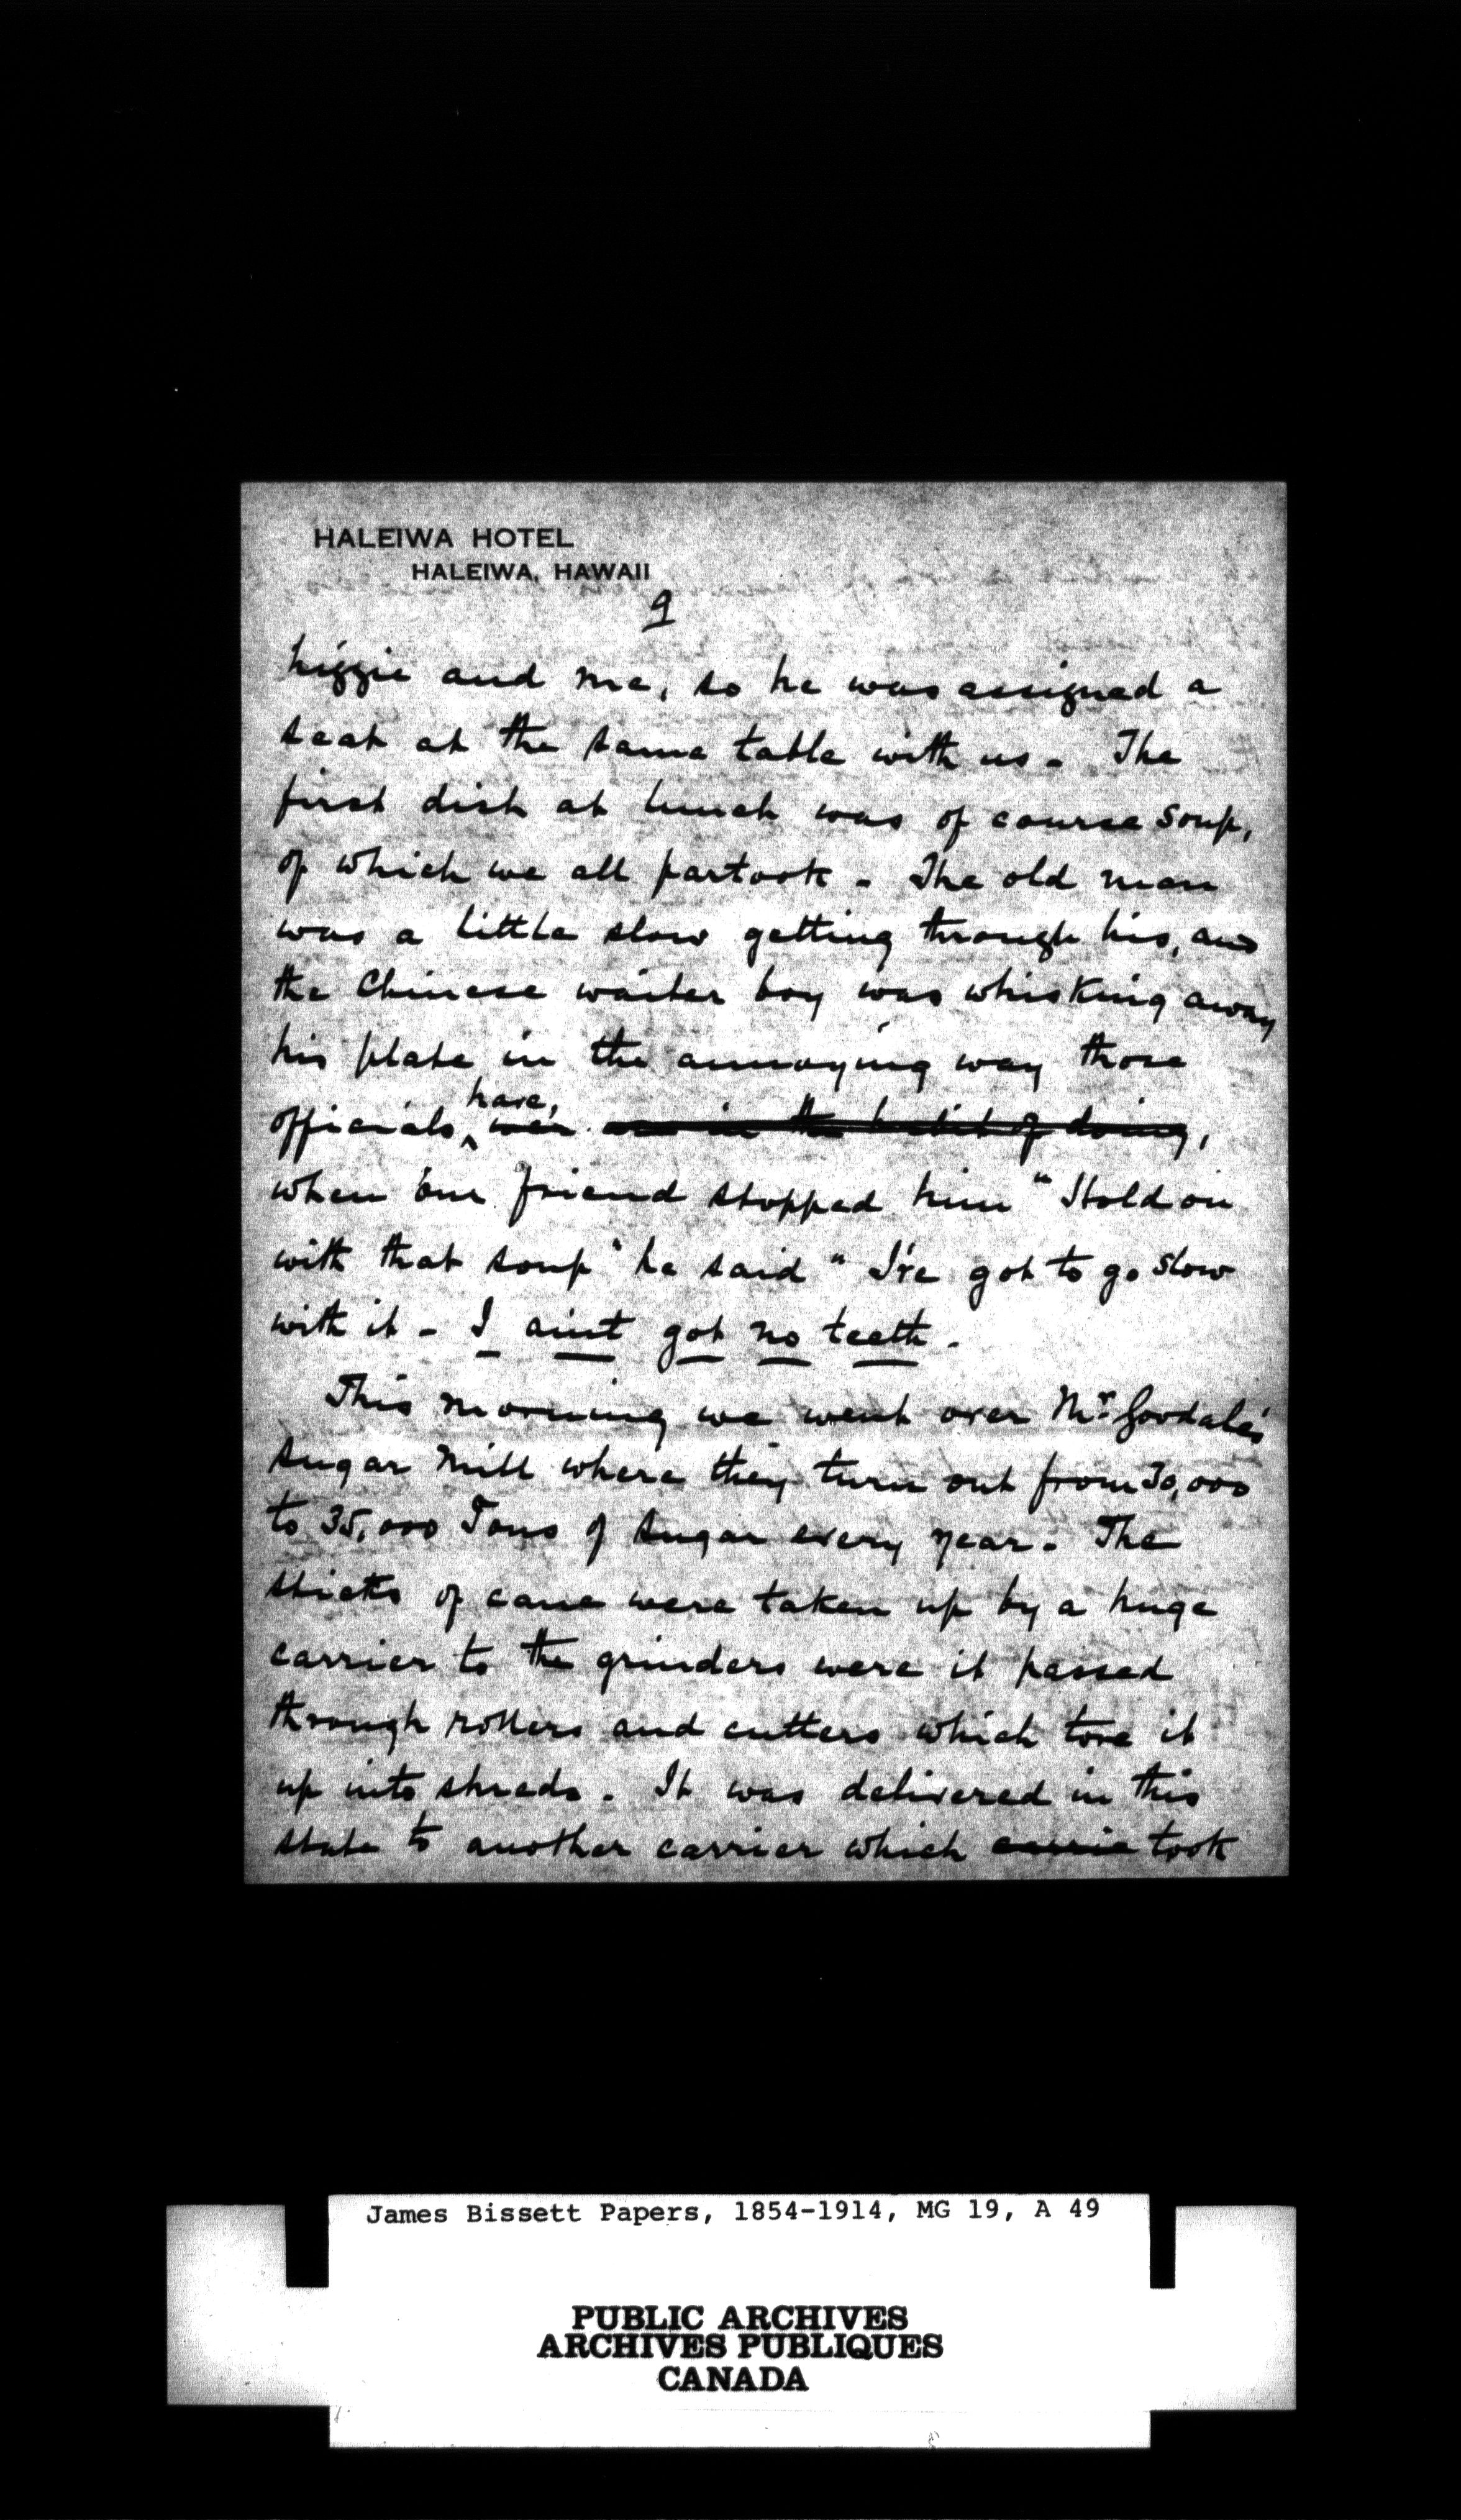 HALEIWA HOTEL
HALEIWA, HAWAII
9
Lizzie and me, so he was assigned a
seat at the same table with us - The
first dish at lunch was of course soup,
of which we all partook - The old man
was a little slow getting through his, and
the Chinese waiter boy was whisking away
his plate in the annoying way those
have,
officials was in the habit of doing,
when our friend stopped him "Hold on
with that soup" he said "I've got to go slow
with it - I aint got no teeth -
This morning we went over Mr. Goodale's
sugar mill where they turn out from 30,000
to 35,000 Tons of sugar every year - The
sticks of cane were taken up by a huge
carrier to the grinders were it passed
through rollers and cutters which tore it
up into shreds. It was delivered in this
state to another carrier which carrie took
James Bissett Papers, 1854-1914, MG 19, A 49
PUBLIC ARCHIVES
ARCHIVES PUBLIQUES
CANADA